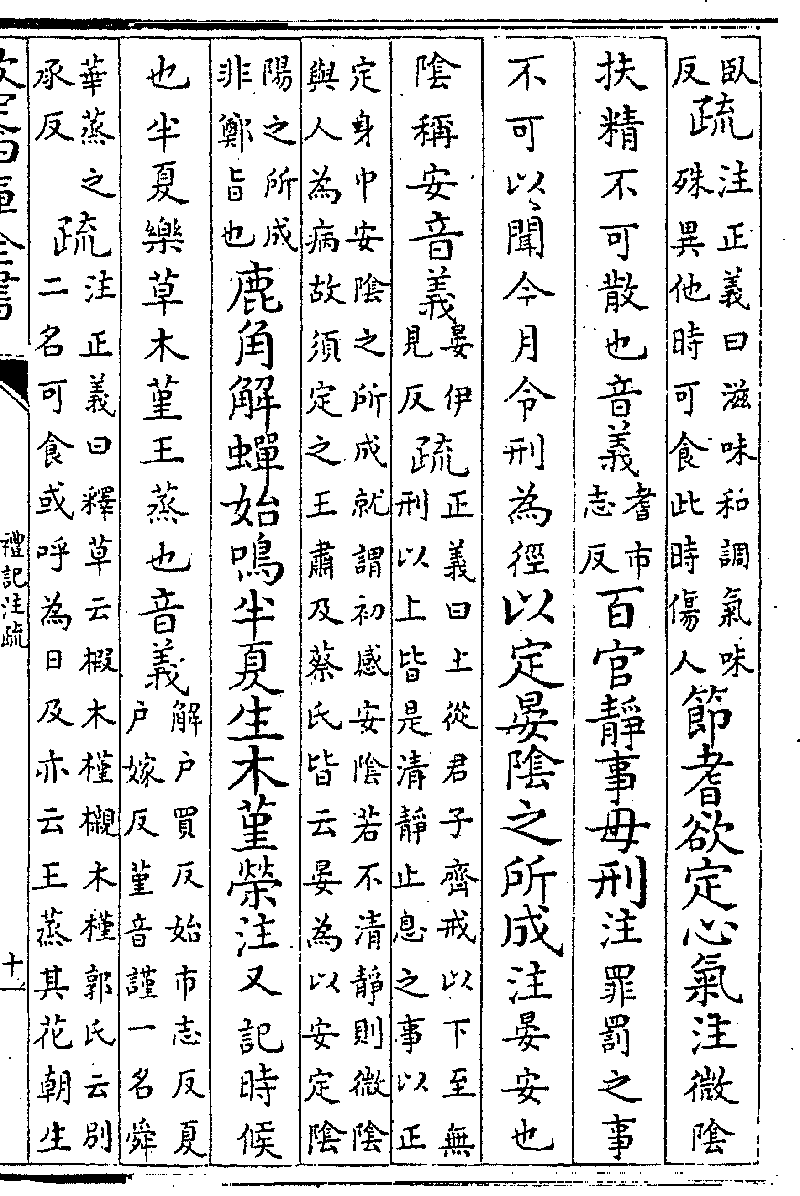 臥反疏注正義曰滋味和調氣味殊異他時可食此時傷人節耆欲定心氣注微陰
扶精不可散也音義耆市志反百官靜事毋刑注罪罰之事
不可以聞今月令刑為徑以定晏陰之所成注晏安也
陰稱安音義晏伊見反疏正義曰上從君子齊戒以下至無刑以上皆是清靜止息之事以正
定身中安陰之所成就謂初感安陰若不清靜則微陰與人為病故須定之王肅及蔡氏皆云晏為以安定陰
陽之所成非鄭旨也鹿角解蟬始鳴半夏生木堇榮注又記時候
也半夏樂草木堇王蒸也音義解戶買反始市志反夏戶嫁反堇音謹一名舜
華蒸之承反疏注正義曰釋草云椵木槿櫬木槿郭氏云別二名可食或呼為日及亦云王蒸其花朝生
禮記注疏
十一